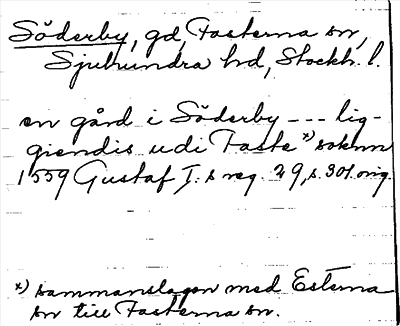 Söderby, gd, Fasterna sn,
Sjuhundra hd, Stockh. l.
en gård i Söderby --- lig-
giendis udi Faste *) soknn
1559 Gustaf I:s reg. 29, s. 301. orig.
*) sammanslagen med Esterna
sn till Fasterna sn.